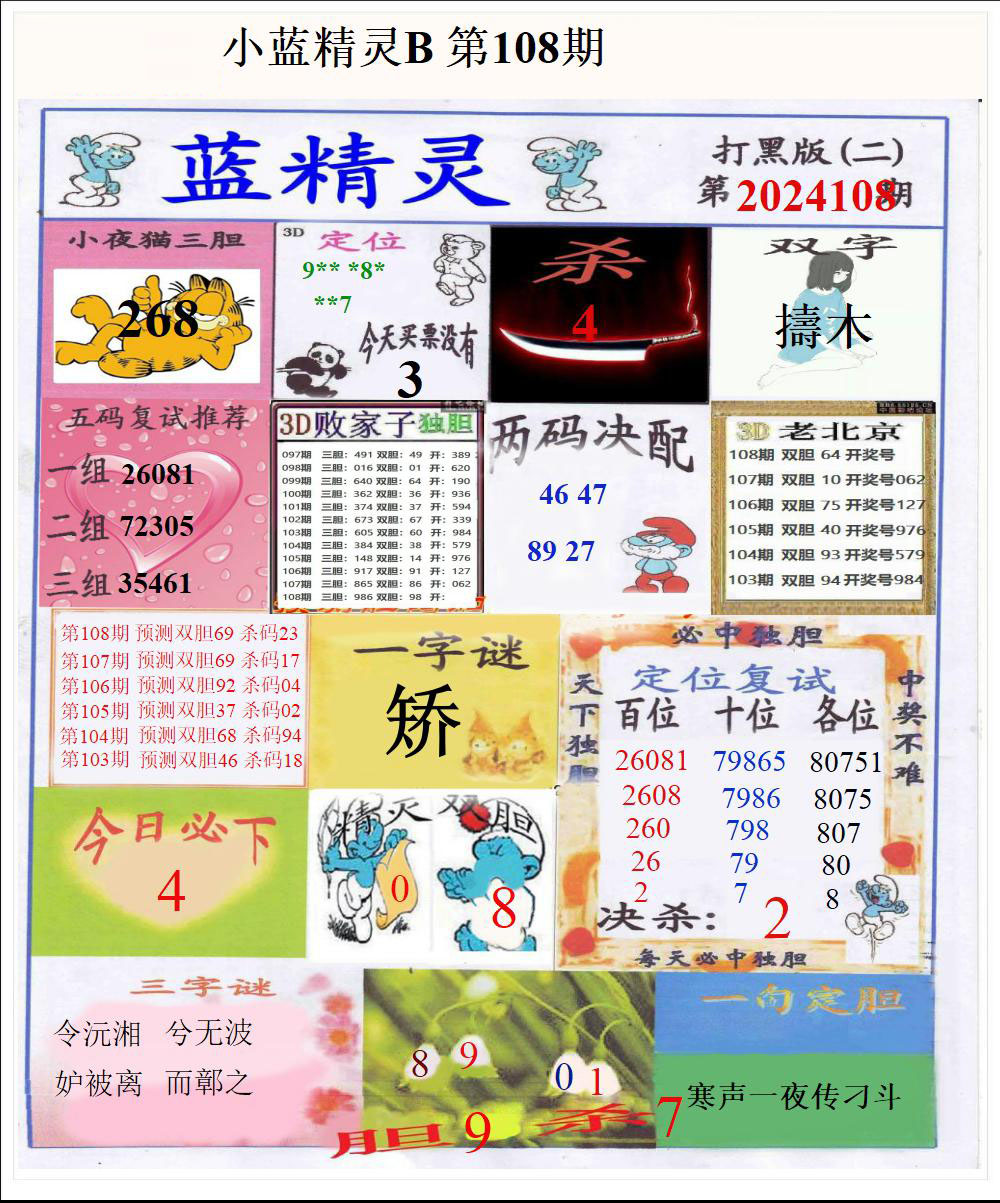 小蓝精灵B 第108期
蓝精灵
打黑版(二)
第2024108期
小夜猫三胆
268
3D 定位
9** *8*
**7
今天买票没有
3
杀
4
双字
擣木
五码复试推荐
一组 26081
二组 72305
三组 35461
3D败家子独胆
097期 三胆: 491 双胆: 49 开: 389
098期 三胆: 016 双胆: 01 开: 620
099期 三胆: 640 双胆: 64 开: 190
100期 三胆: 362 双胆: 36 开: 936
101期 三胆: 374 双胆: 37 开: 594
102期 三胆: 673 双胆: 67 开: 339
103期 三胆: 605 双胆: 60 开: 984
104期 三胆: 384 双胆: 38 开: 579
105期 三胆: 148 双胆: 14 开: 976
106期 三胆: 917 双胆: 91 开: 127
107期 三胆: 865 双胆: 86 开: 062
108期 三胆: 986 双胆: 98 开:
两码决配
46 47
89 27
3D 老北京
108期 双胆 64 开奖号
107期 双胆 10 开奖号062
106期 双胆 75 开奖号127
105期 双胆 40 开奖号976
104期 双胆 93 开奖号579
103期 双胆 94 开奖号984
第108期 预测双胆69 杀码23
第107期 预测双胆69 杀码17
第106期 预测双胆92 杀码04
第105期 预测双胆37 杀码02
第104期 预测双胆68 杀码94
第103期 预测双胆46 杀码18
一字谜
矫
必中独胆
天下独胆
中奖不难
定位复试
百位 十位 各位
26081 79865 80751
2608 7986 8075
260 798 807
26 79 80
2 7 8
决杀: 2
每天必中独胆
今日必下
4
精灵双胆
0 8
三字谜
令沅湘 兮无波
妒被离 而鄣之
8 9 0 1
胆 9 杀 7
一句定胆
寒声一夜传刁斗